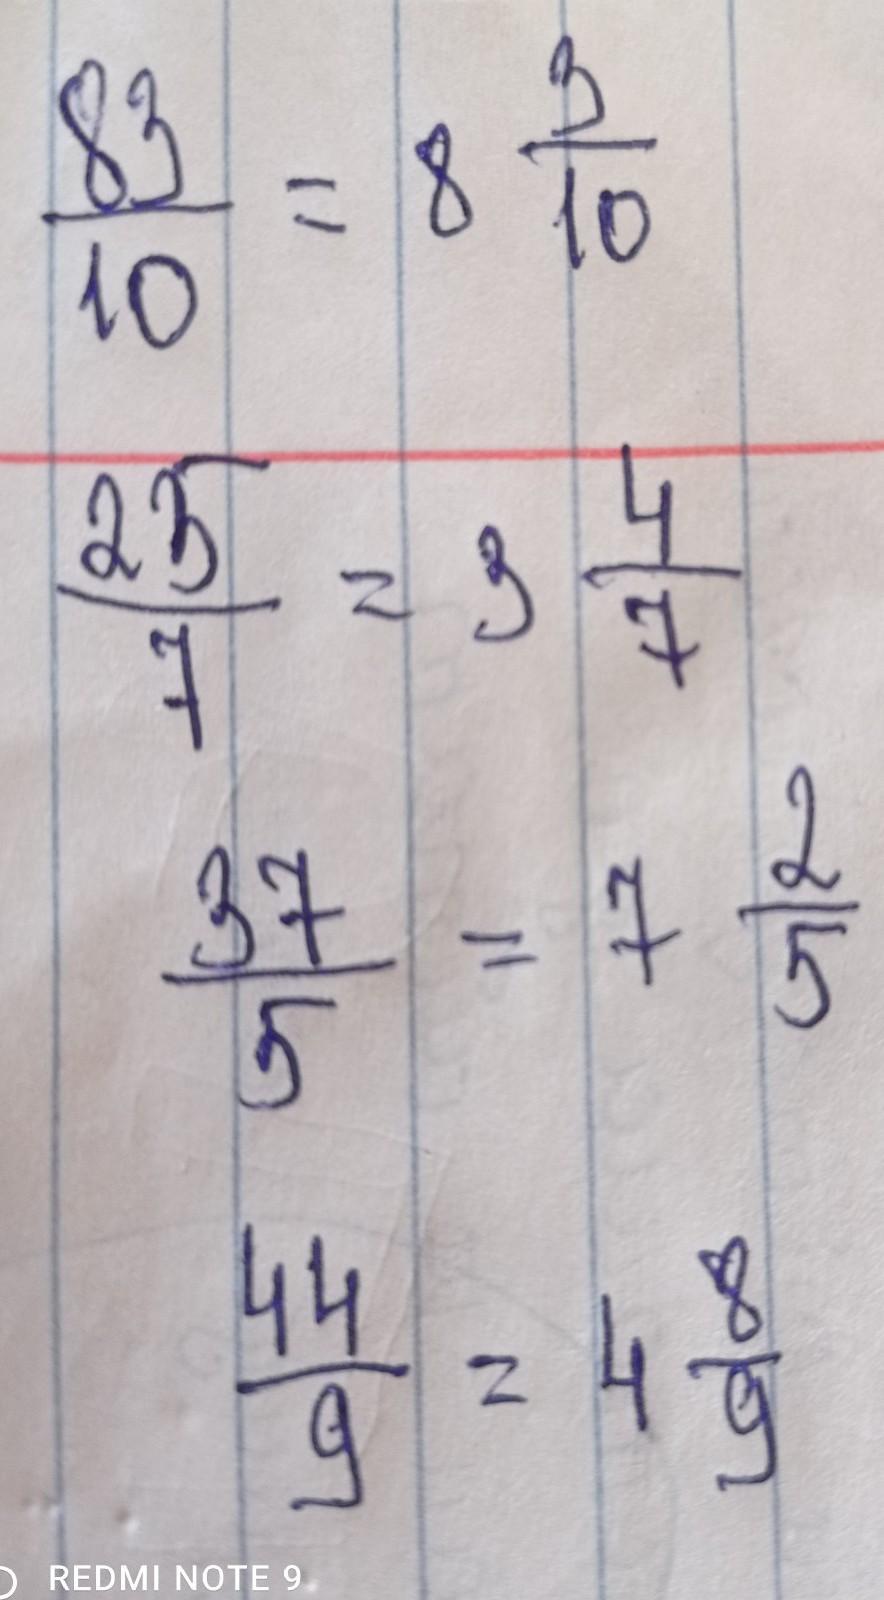 83/10 = 8 3/10
25/7 = 3 4/7
37/5 = 7 2/5
44/9 = 4 8/9
REDMI NOTE 9